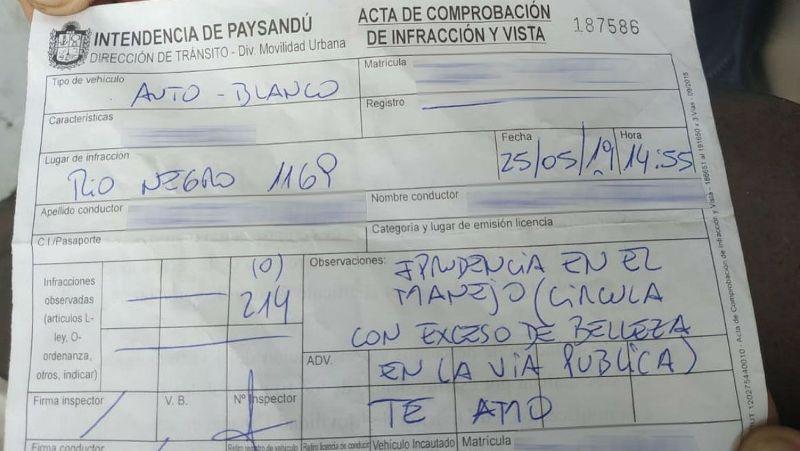 INTENDENCIA DE PAYSANDÚ
DIRECCIÓN DE TRÁNSITO - Div. Movilidad Urbana
ACTA DE COMPROBACIÓN
DE INFRACCIÓN Y VISTA
187586
Tipo de vehículo
AUTO - BLANCO
Matrícula
Características
Registro
Lugar de infracción
RIO NEGRO 1169
Fecha
25/05/19
Hora
14:55
Apellido conductor
Nombre conductor
C.I./Pasaporte
Categoría y lugar de emisión licencia
Infracciones
observadas
(artículos L-
ley, O-
ordenanza,
otros, indicar)
(O)
214
Observaciones:
IPRUDENCIA EN EL
MANEJO (CIRCULA
CON EXCESO DE BELLEZA
EN LA VIA PUBLICA)
ADV.
TE AMO
Firma inspector
V. B.
Nº Inspector
Firma conductor
Retiro registro de vehículo
Retiro licencia de conducir
Vehículo Incautado
Matrícula
RUT: 120275440010 - Acta de Comprobación de Infracción y Vista - 186651 al 191650 x 3 Vías - 09/2015